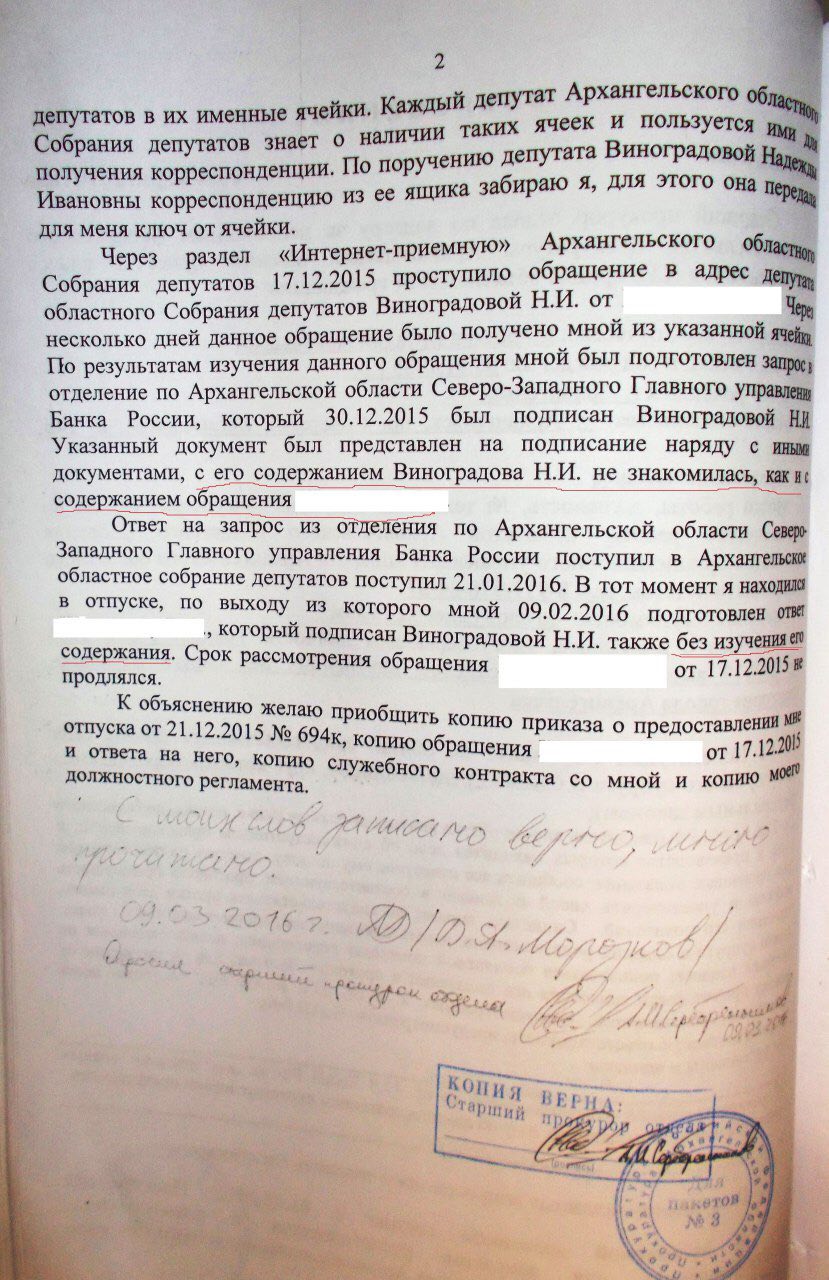 2
депутатов в их именные ячейки. Каждый депутат Архангельского областного
Собрания депутатов знает о наличии таких ячеек и пользуется ими для
получения корреспонденции. По поручению депутата Виноградовой Надежды
Ивановны корреспонденцию из ее ящика забираю я, для этого она передала
для меня ключ от ячейки.
Через раздел «Интернет-приемную» Архангельского областного
Собрания депутатов 17.12.2015 проступило обращение в адрес депутата
областного Собрания депутатов Виноградовой Н.И. от Через
несколько дней данное обращение было получено мной из указанной ячейки.
По результатам изучения данного обращения мной был подготовлен запрос в
отделение по Архангельской области Северо-Западного Главного управления
Банка России, который 30.12.2015 был подписан Виноградовой Н.И.
Указанный документ был представлен на подписание наряду с иными
документами, с его содержанием Виноградова Н.И. не знакомилась, как и с
содержанием обращения
Ответ на запрос из отделения по Архангельской области Северо-
Западного Главного управления Банка России поступил в Архангельское
областное собрание депутатов поступил 21.01.2016. В тот момент я находился
в отпуске, по выходу из которого мной 09.02.2016 подготовлен ответ
., который подписан Виноградовой Н.И. также без изучения его
содержания. Срок рассмотрения обращения от 17.12.2015 не
продлялся.
К объяснению желаю приобщить копию приказа о предоставлении мне
отпуска от 21.12.2015 № 694к, копию обращения от 17.12.2015
и ответа на него, копию служебного контракта со мной и копию моего
должностного регламента.
С моих слов записано верно, мною
прочитано.
09.03.2016 г. /Д.А. Морозков/
старший прокурор отдела
09.03.2016
КОПИЯ ВЕРНА:
Старший прокурор отдела
(подпись)
Прокуратура Архангельской области
Для
пакетов
№ 3